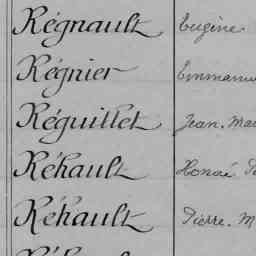 Régnault Eugène
Régnier
Réguillet Jean. Ma
Réhault Honoé
Réhault Pierre. M